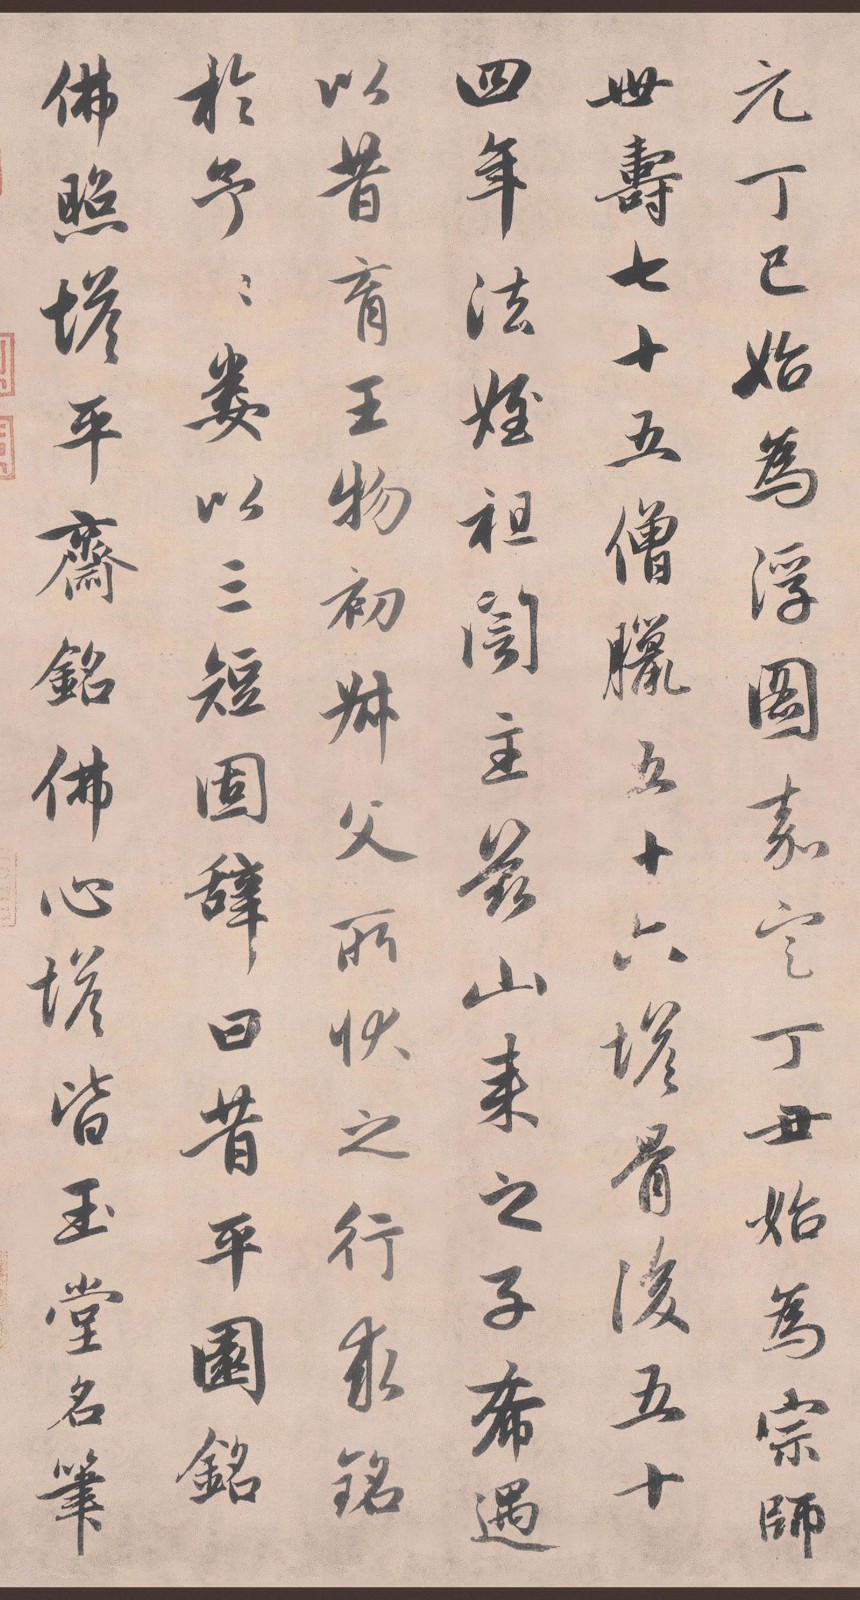 元丁巳始為浮圖嘉定丁丑始為宗師
世壽七十五僧臘五十六塔骨後五十
四年法姪祖誾主茲山來之子希遇
以昔育王物初叔父所狀之行求銘
於予〻婁以三短固辭曰昔平園銘
佛照塔平齋銘佛心塔皆玉堂名筆